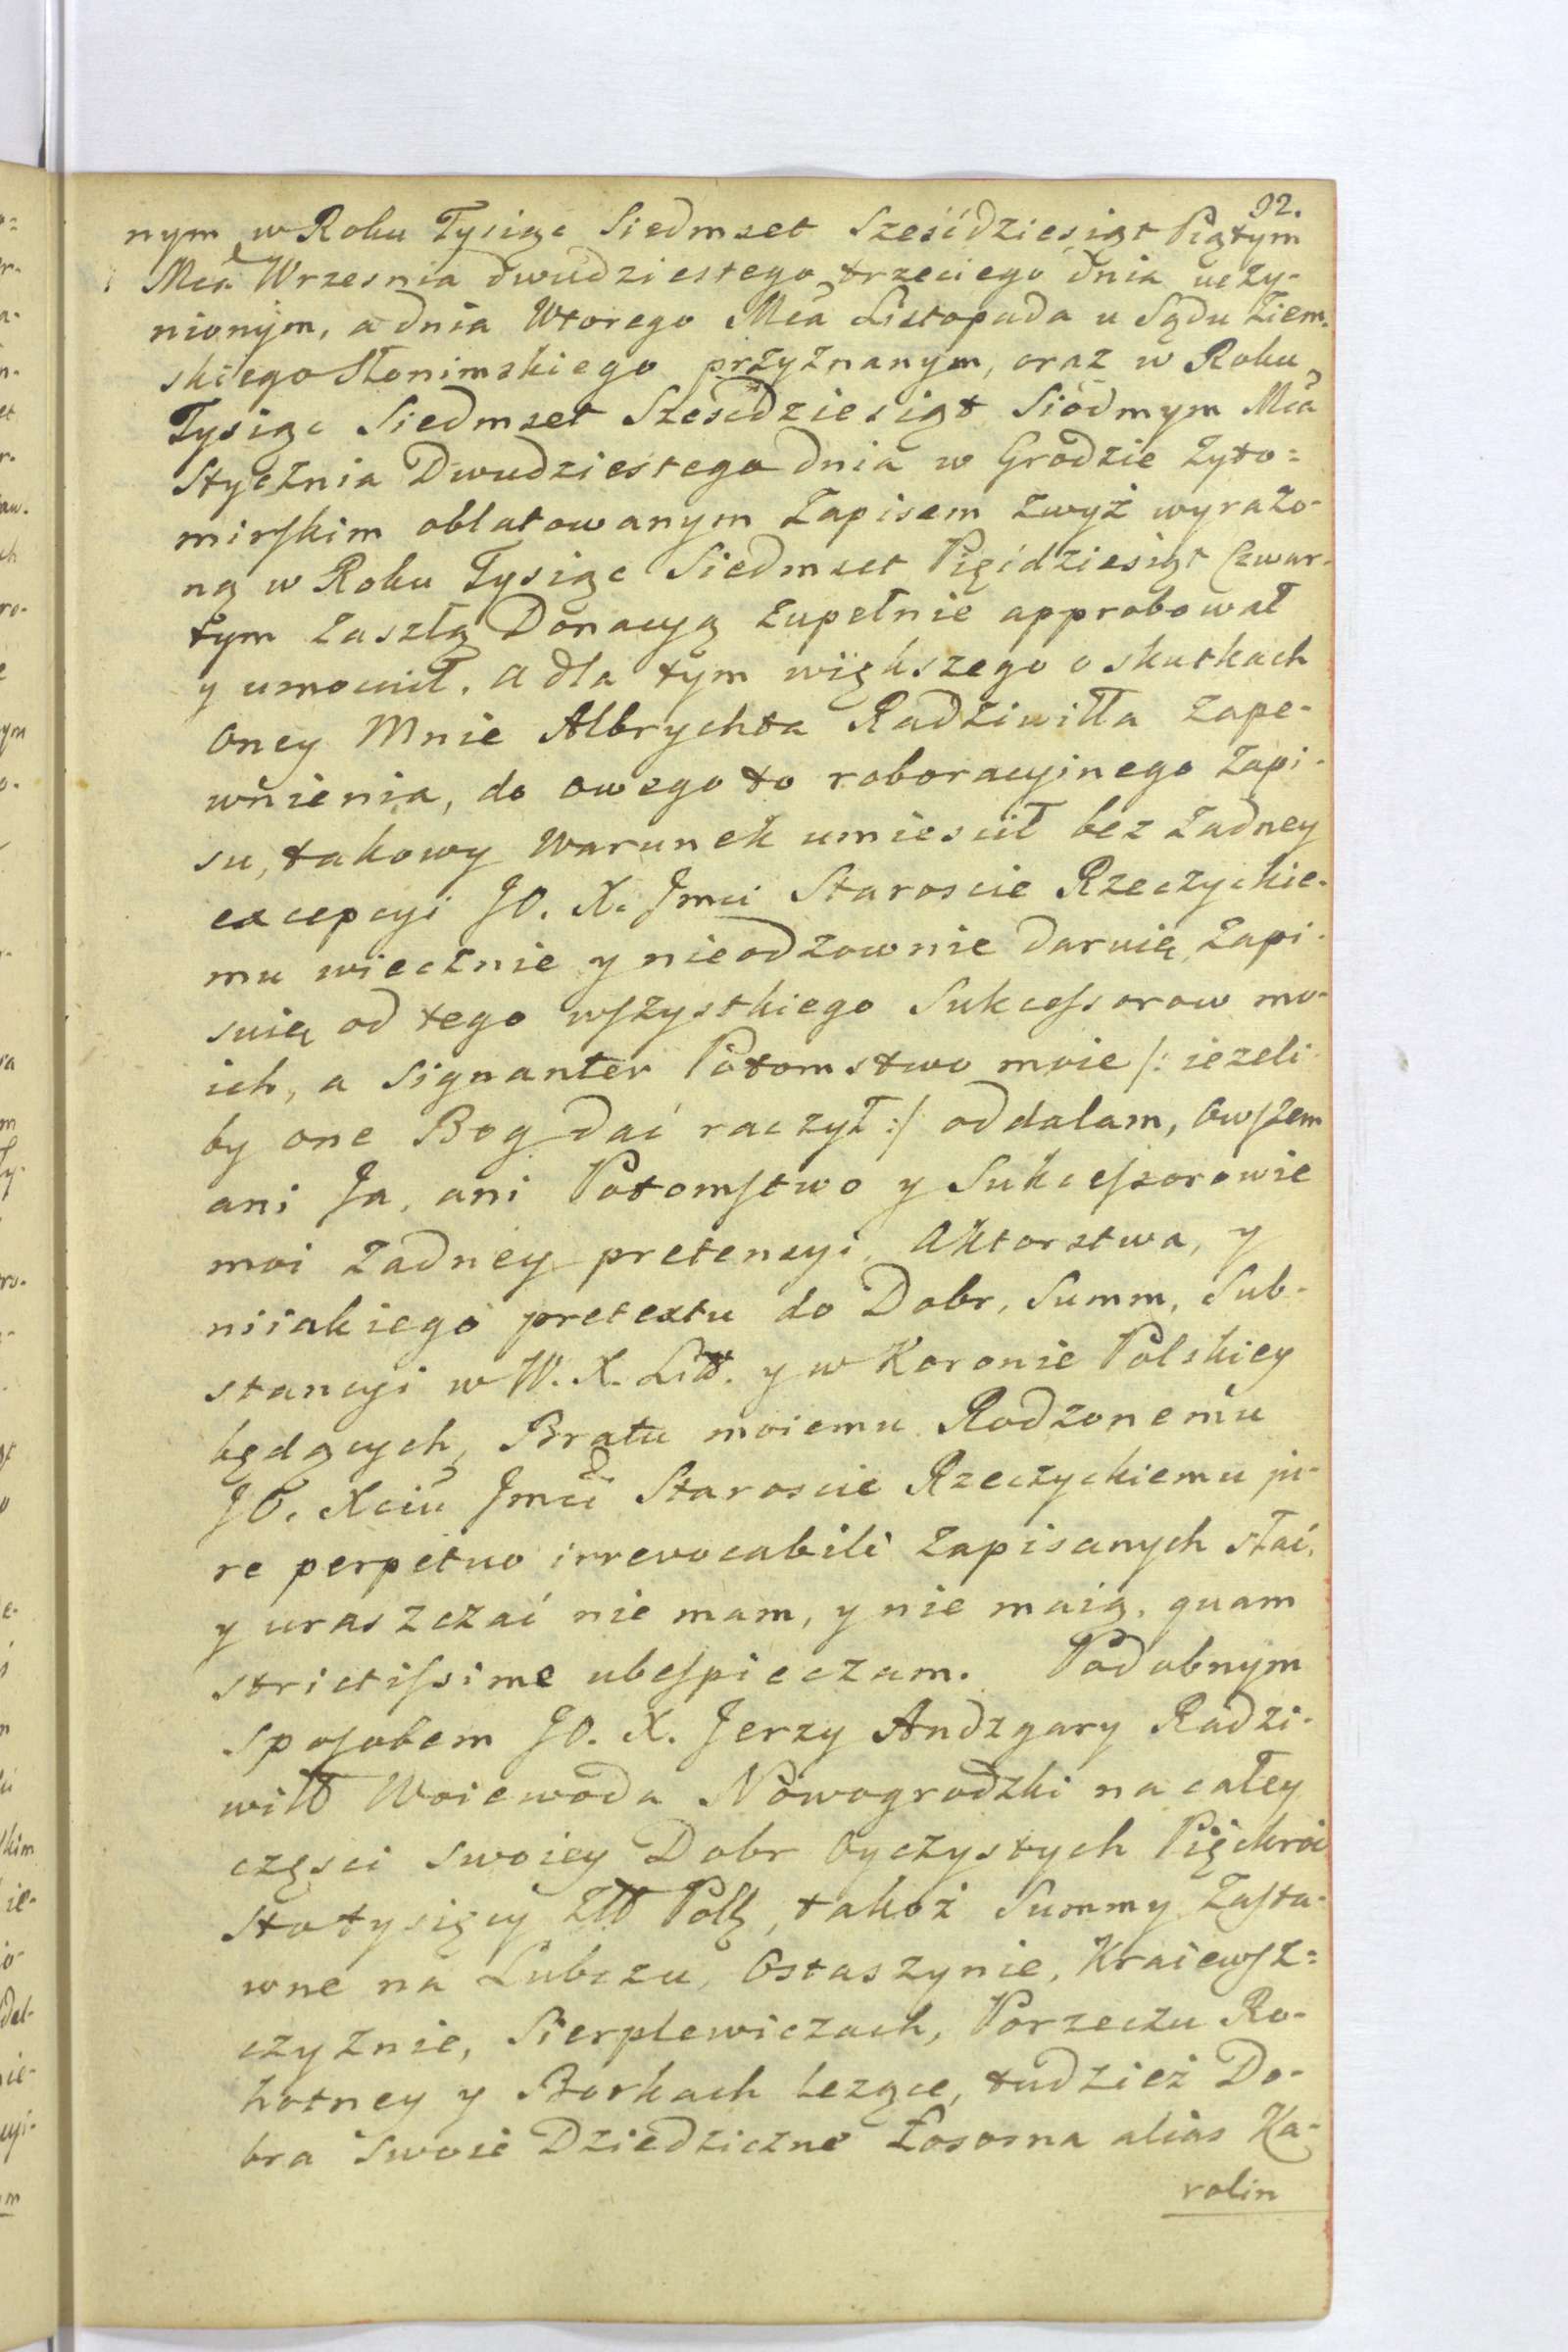 92.
nym w Roku Tysiąc Siedmset Sześćdziesiąt Piątym
Mca Wrzesnia dwudziestego trzeciego dnia uczy-
nionym, a dnia Wtorego Mca Listopada u Sądu Ziem-
skiego Słonimskiego przyznanym, oraz w Roku
Tysiąc Siedmset Szescdziesiąt Siodmym Mca
Stycznia Dwudziestego dnia w Grodzie Zyto=
mirskim oblatowanym Zapisem zwyż wyrażo-
ną w Roku Tysiąc Siedmset Pięćdziesiąt Czwar-
tym zaszłą Donacyą zupełnie approbował
y umocnił. A dla tym większego o skutkach
oney Mnie Albrychta Radziwiłła zape-
wnienia, do owego to roboracyinego zapi-
su, takowy Warunek umiescił bez żadney
excepcyi JO. X. Jmci Staroscie Rzeczyckie-
mu wiecznie y nieodzownie daruię, zapi-
suię od tego wszystkiego Sukcessorow mo-
ich, a signanter Potomstwo moie /: ieżeli-
by one Bog dać raczył :/ oddalam, owszem
ani Ja, ani Potomstwo y Sukcessorowie
moi żadney pretensyi, Aktorstwa, y
niiakiego pretextu do Dobr, Summ, Sub-
stancyi w W. X. Litt. y w Koronie Polskiey
będących, Bratu moiemu Rodzonemu
JO. Xciu Jmci Staroscie Rzeczyckiemu ju-
re perpetuo irrevocabili zapisanych słać,
y uraszczać nie mam, y nie maią, quam
strictissime ubespieczam. Podobnym
sposobem JO. X. Jerzy Andzgary Radzi-
wiłł Woiewoda Nowogrodzki na całey
częsci swoiey Dobr Oyczystych Pięckroć
stotysięcy Złł Polł, takoż Summy Zasta-
wne na Lubczu, Ostaszynie, Kraiewsz=
czyznie, Sierplewiczach, Porzeczu Ro-
hotney y Borkach leżące, tudzież Do-
bra swoie Dziedziczne Łososna alias Ka-
rolin